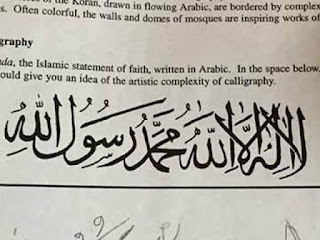 s of the Koran, drawn in flowing Arabic, are bordered by complex
s. Often colorful, the walls and domes of mosques are inspiring works of
graphy
da, the Islamic statement of faith, written in Arabic. In the space below,
ould give you an idea of the artistic complexity of calligraphy.
لا إله إلا الله محمد رسول الله